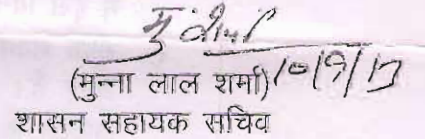 (मुन्ना लाल शर्मा) 10/9/17
शासन सहायक सचिव